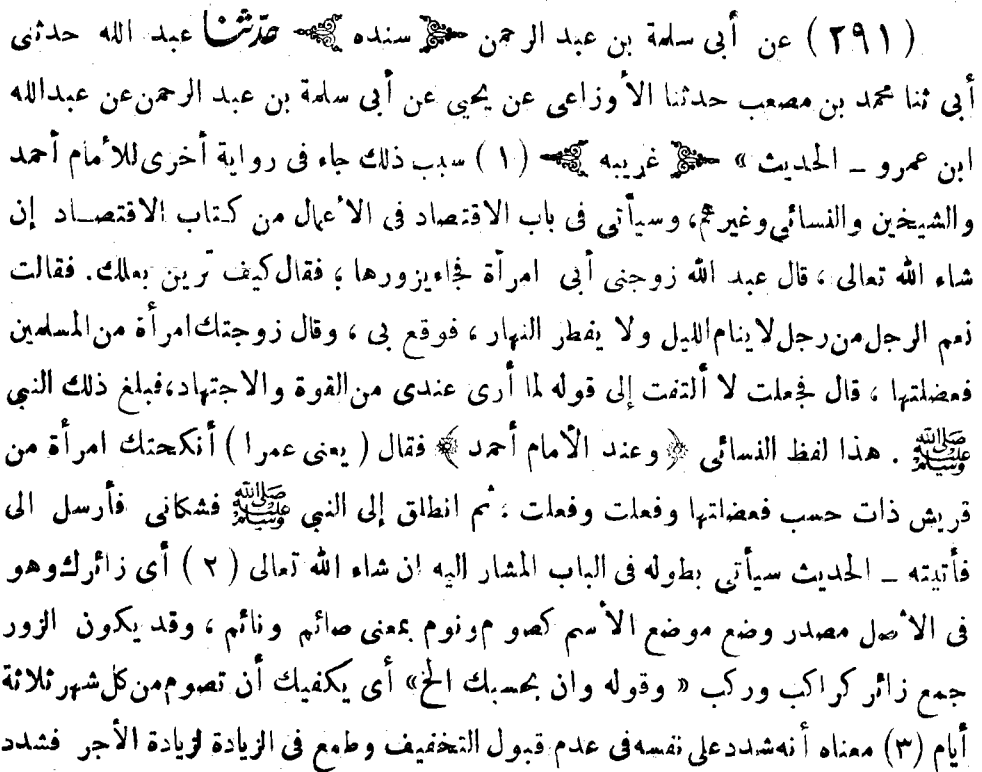 (٢٩١) عن أبى سلمة بن عبد الرحمن ﴿سنده﴾ حدّثنا عبد الله حدثنى
أبى ثنا محمد بن مصعب حدثنا الأوزاعى عن يحيى عن أبى سلمة بن عبد الرحمن عن عبدالله
ابن عمرو ــ الحديث » ﴿غريبه﴾ (١) سبب ذلك جاء فى رواية أخرى للأمام أحمد
والشيخين والنسائى وغيرهم، وسيأتى فى باب الاقتصاد فى الأعمال من كتاب الاقتصاد إن
شاء الله تعالى ، قال عبد الله زوجنى أبى امرأة فجاء يزورها ؛ فقال كيف ترين بعلك. فقالت
نعم الرجل من رجل لاينام الليل ولا يفطر النهار ، فوقع بى ، وقال زوجتك امرأة من المسلمين
فعضلتها ، قال فجعلت لا ألتفت إلى قوله لما أرى عندى من القوة والاجتهاد،فبلغ ذلك النبى
ﷺ . هذا لفظ النسائى ﴿وعند الأمام أحمد﴾ فقال ( يعنى عمرا ) أنكحتك امرأة من
قريش ذات حسب فعضلتها وفعلت وفعلت ؛ ثم انطلق إلى النبى ﷺ فشكانى فأرسل الى
فأتيته ــ الحديث سيأتى بطوله فى الباب المشار اليه ان شاء الله تعالى (٢) أى زائرك وهو
فى الأصل مصدر وضع موضع الأسم كصوم ونوم بمعنى صائم ونائم ، وقد يكون الزور
جمع زائر كراكب وركب « وقوله وان بحسبك الخ» أى يكفيك أن تصوم من كل شهر ثلاثة
أيام (٣) معناه أنه شدد على نفسه فى عدم قبول التخفيف وطمع فى الزيادة لزيادة الأجر فشدد